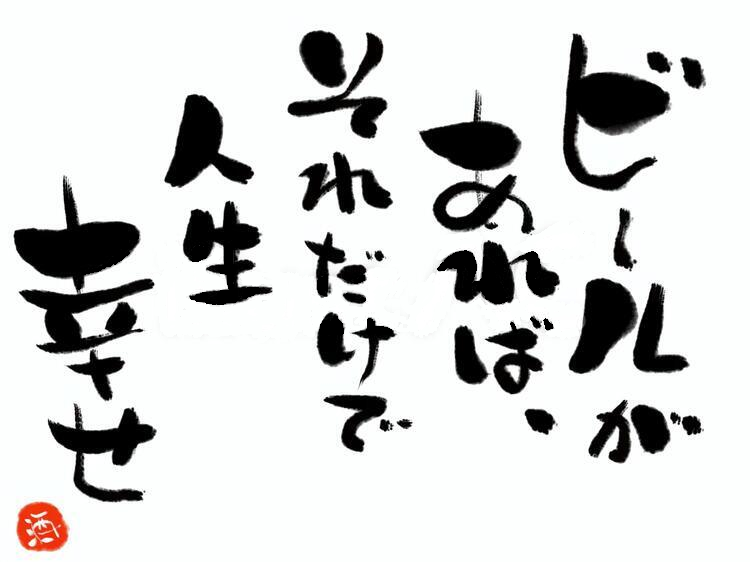 ビールが
あれば、
それだけで
人生
幸せ
酒